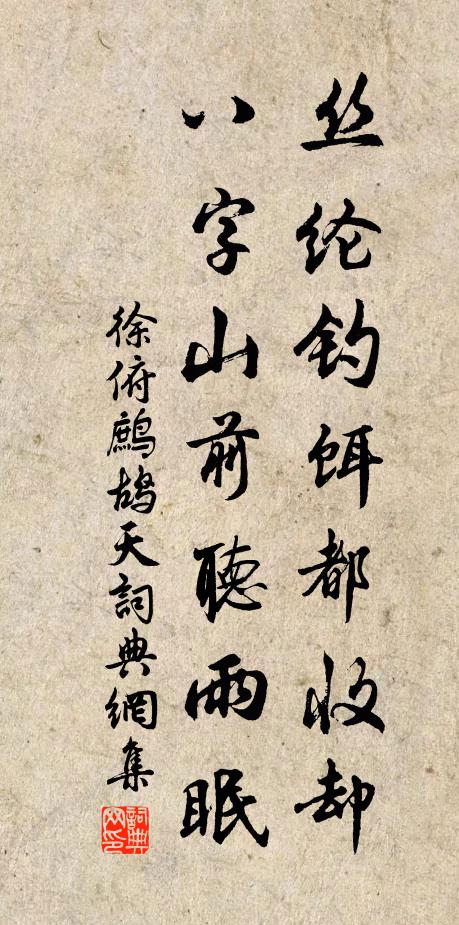 丝纶钓饵都收却
八字山前聽雨眠
徐俯鷓鴣天詞典網集
詞典网印